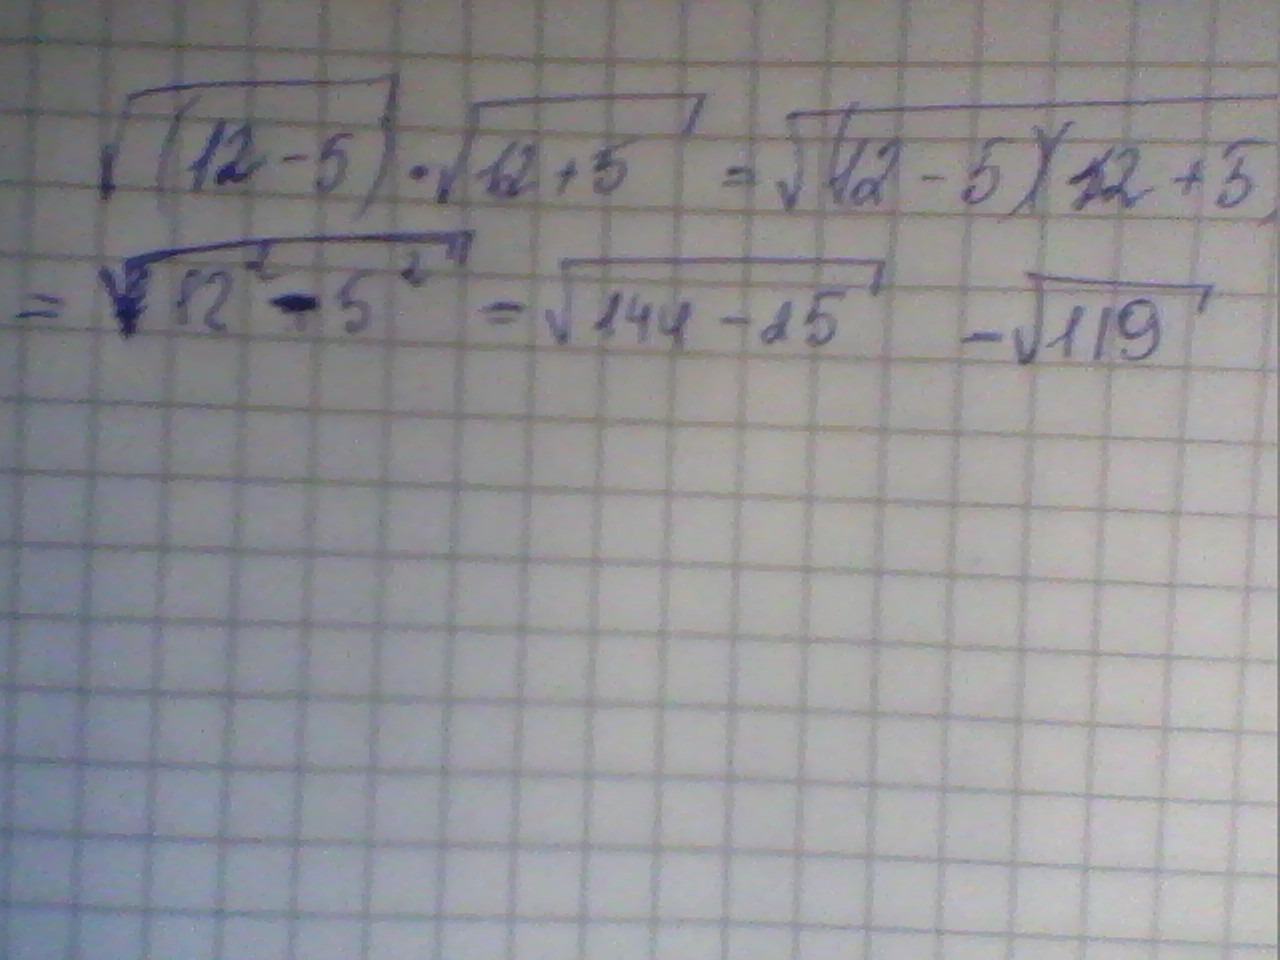 √(12-5) · √12+5 = √(12-5)(12+5
= √12² - 5² = √144 - 25 - √119